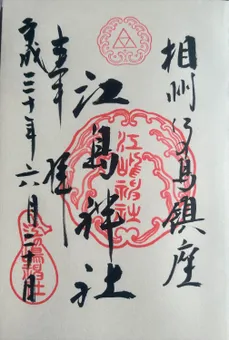 相州江の島鎮座
奉拝
江島神社
江嶋神社
平成三十年六月二十日